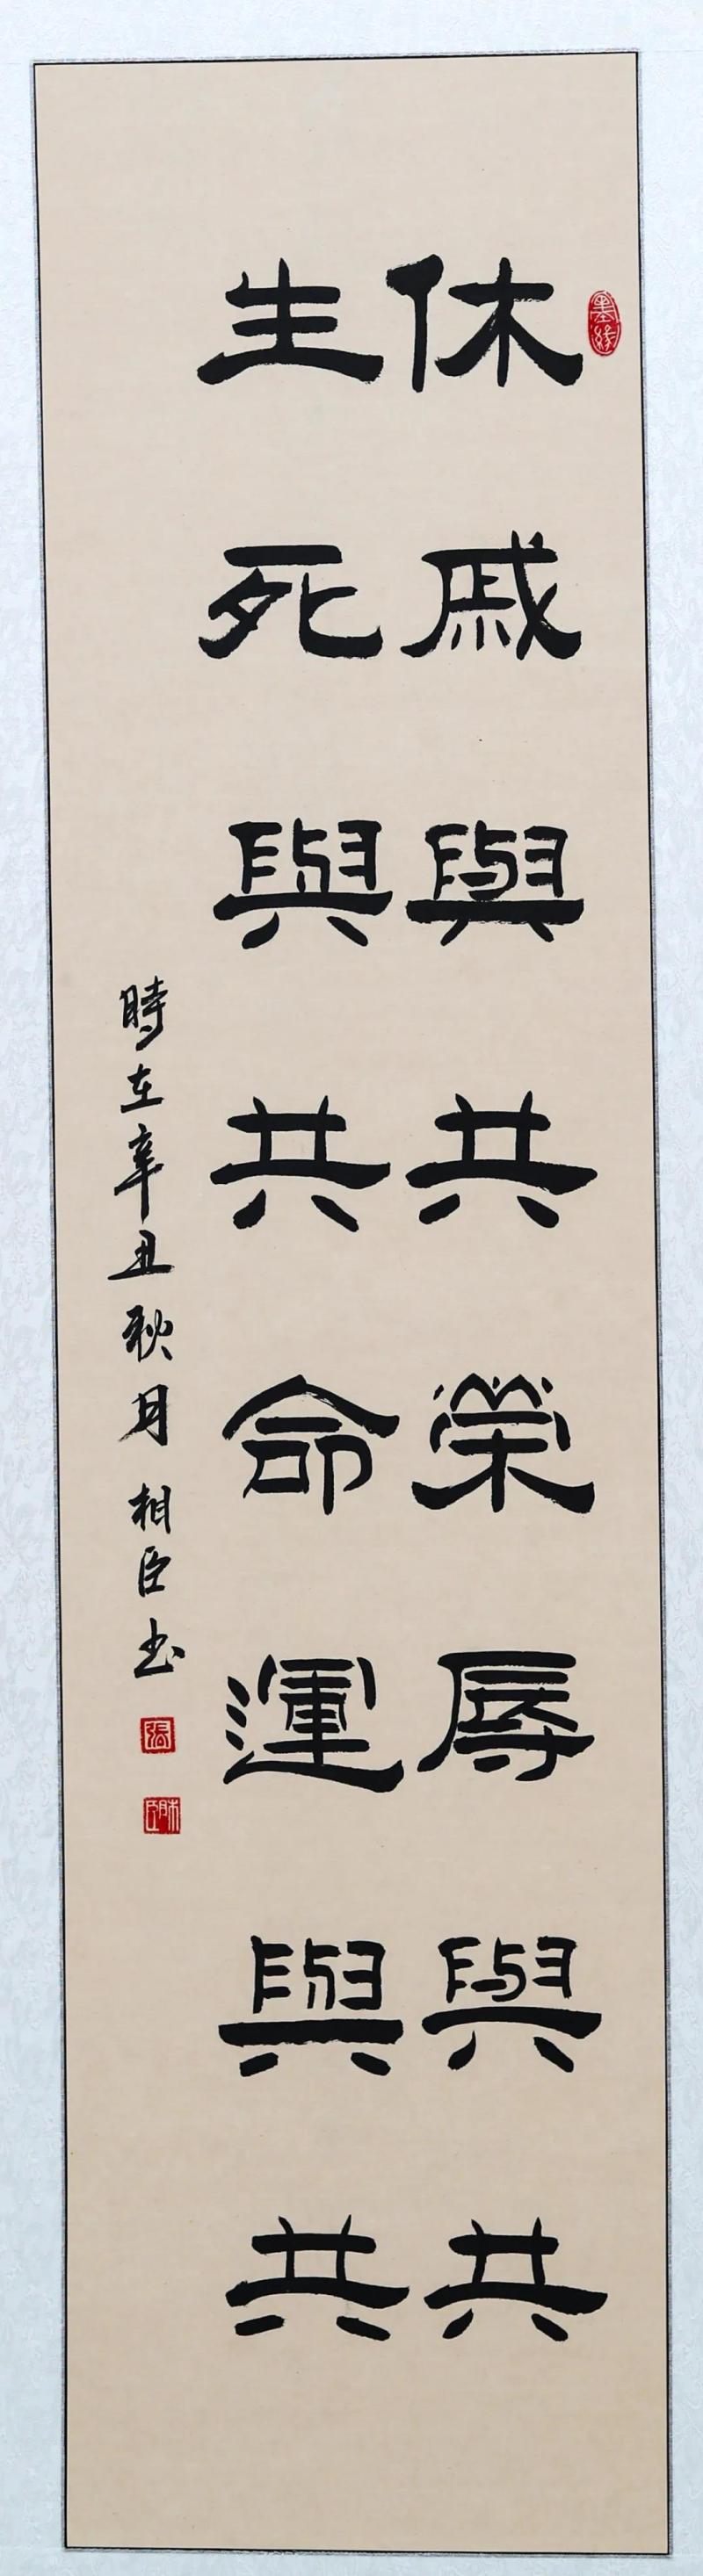 休戚與共榮辱與共
生死與共命運與共
時在辛丑秋月相臣书
墨緣
張
相臣